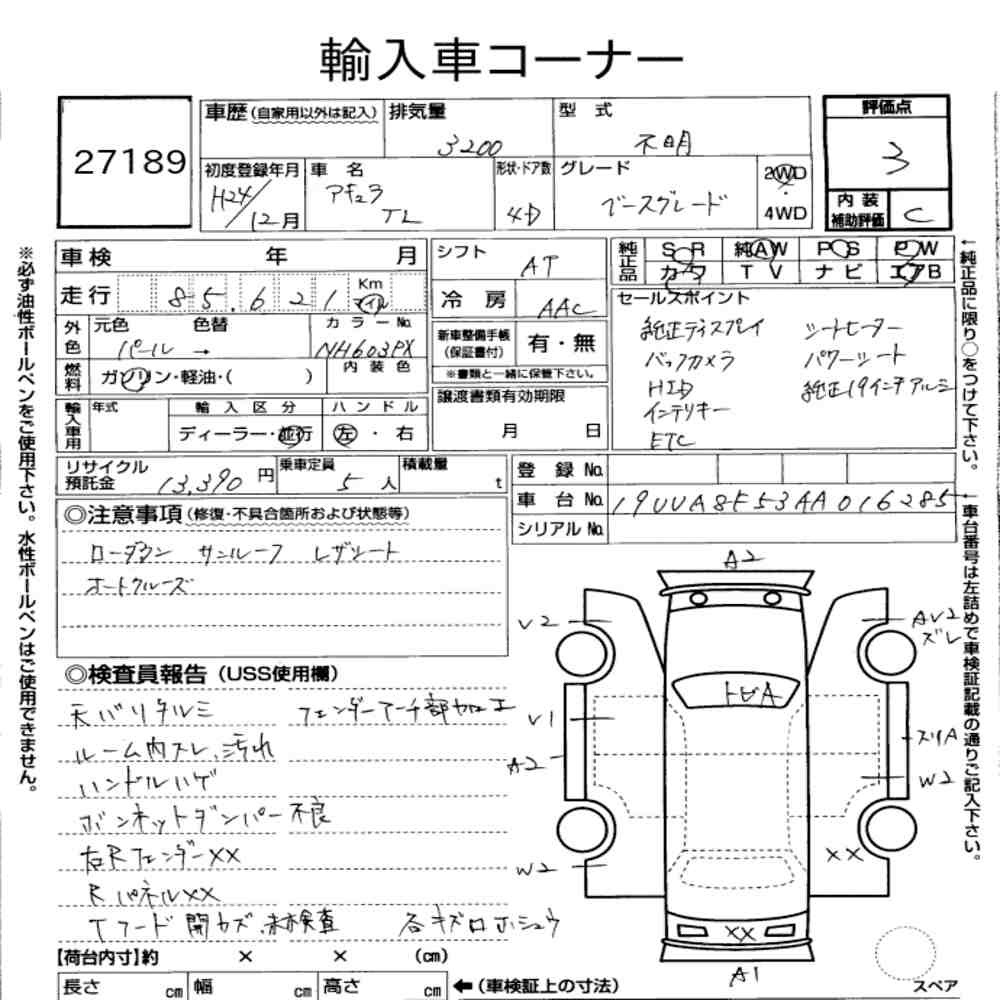 輸入車コーナー
27189
車歴 (自家用以外は記入)
排気量
3200
型 式
不明
評価点
3
初度登録年月
H24/12月
車 名
アキュラ
TL
形状・ドア数
4D
グレード
ベースグレード
2WD
4WD
内 装
補助評価
C
車検 年 月
シフト
AT
純正品
S R 純AW P S P W
カワ T V ナビ エアB
走行 85,621 Km
マイル
冷 房
AAC
セールスポイント
純正ディスプレイ シートヒーター
バックカメラ パワーシート
HID 純正19インチアルミ
インテリキー
ETC
外色
元色 色替
パール →
カラーNo.
NH603PX
新車整備手帳
(保証書付)
有・無
※書類と一緒に保管下さい。
燃料
ガソリン・軽油・( )
内 装 色
譲渡書類有効期限
月 日
輸入車用
年式
輸 入 区 分
ハ ン ド ル
ディーラー・並行
左 ・ 右
リサイクル
預託金
13,390 円
乗車定員
5 人
積載量
t
登 録 No.
車 台 No. 19UUA8F53AA016285
シリアル No.
◎注意事項 (修復・不具合箇所および状態等)
ローダウン サンルーフ レザシート
オートクルーズ
◎検査員報告 (USS使用欄)
天バリタルミ フェンダーアーチ部加工
ルーム内スレ、汚れ
ハンドルハゲ
ボンネットダンパー不良
右Rフェンダー××
Rパネル××
Tフード開カズ、未検査 各キズ口ホシュウ
A2
V2
AV2
ズレ
トビA
V1
A2
スリA
W2
W2
××
××
A1
スペア
【荷台内寸】約 × × (cm)
長さ cm 幅 cm 高さ cm
←(車検証上の寸法)
※必ず油性ボールペンをご使用下さい。水性ボールペンはご使用できません。
←純正品に限り○をつけて下さい。
←車台番号は左詰めで車検証記載の通りご記入下さい。